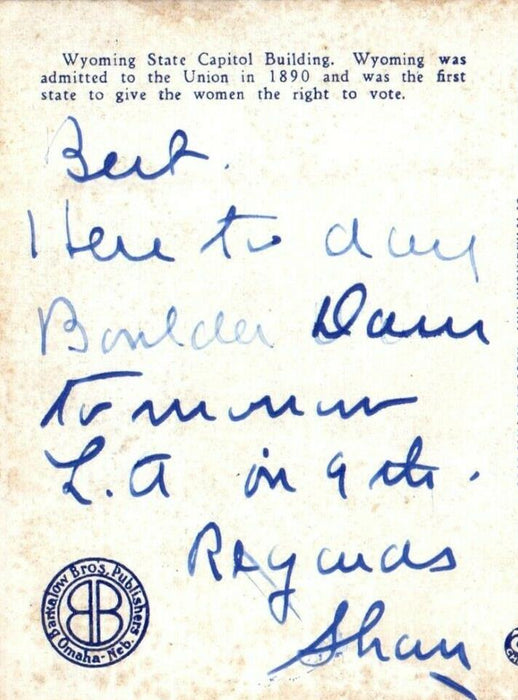 Wyoming State Capitol Building. Wyoming was
admitted to the Union in 1890 and was the first
state to give the women the right to vote.
Bert.
Here to day
Boulder Dam
tomorrow
L.A on 9th.
Regards
Barkalow Bro's. Publishers
Omaha-Neb.